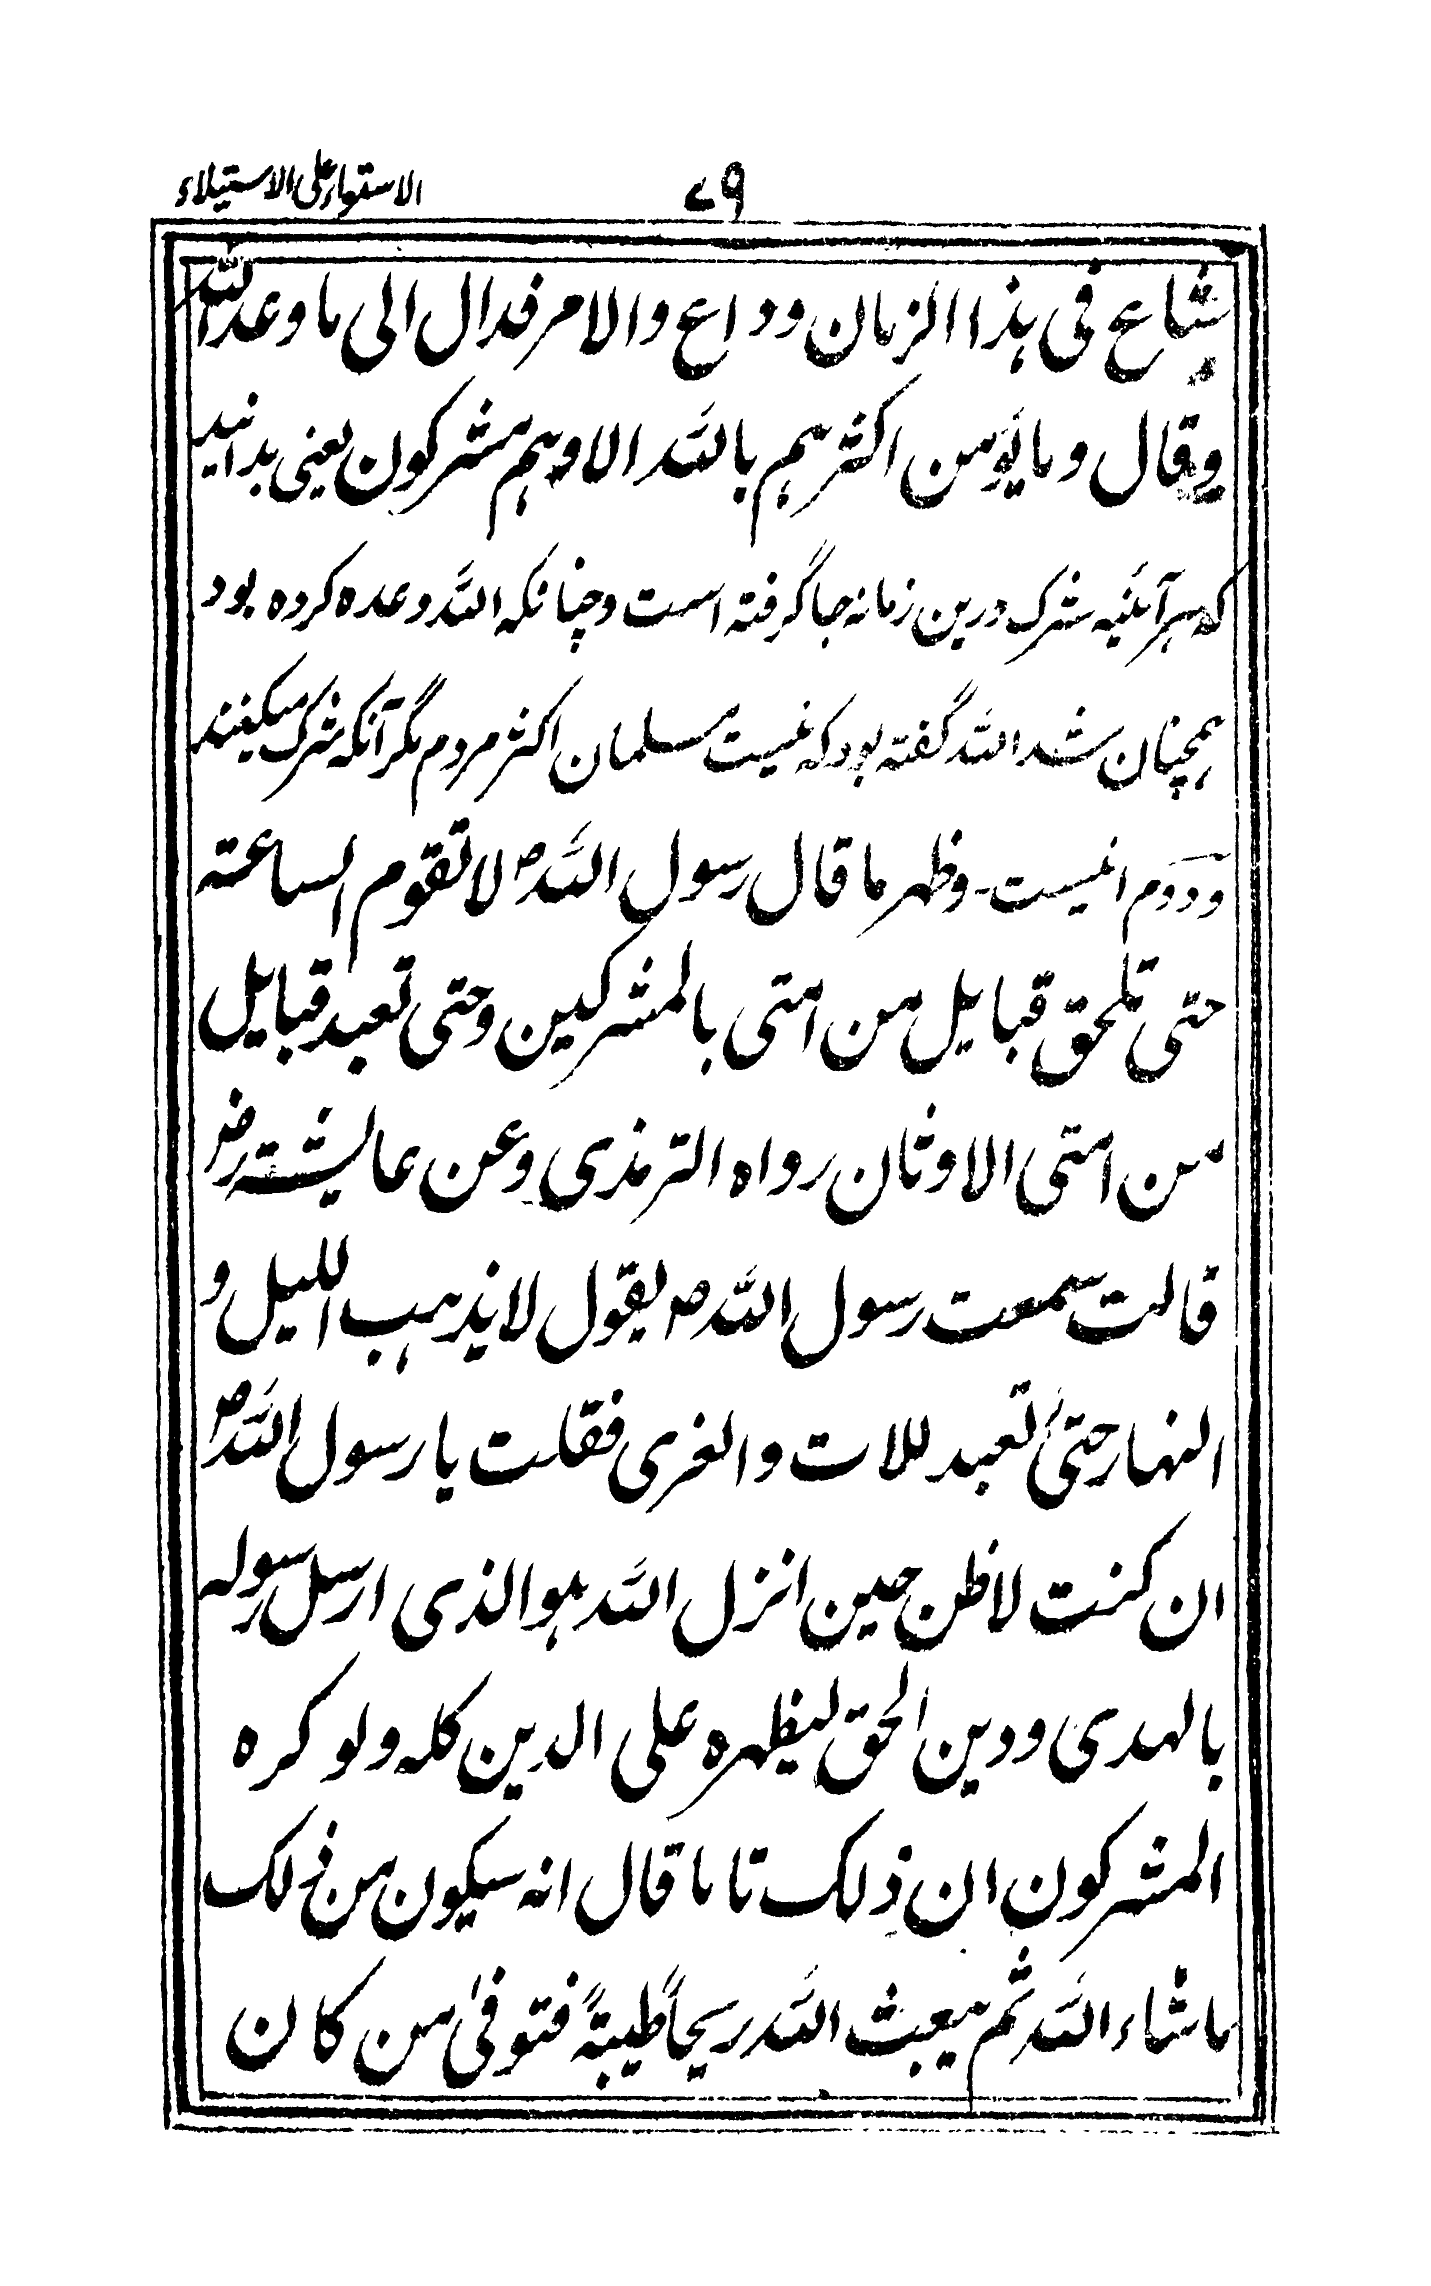 ۷۹ الاستواء علی الاستیلاء
شاع فی هذا الزمان و داع والامر فدال الی ما وعد الله
وقال وما یؤمن اکثرهم بالله الا وهم مشرکون یعنی بدانید
که هر آئنیه شرک درین زمانه جا گرفته است و چنانکه الله وعده کرده بود
همچنان شد الله گفته بود که نیست مسلمان اکثر مردم مگر آنکه شرک میکنند
و ظهر ما قال رسول الله ص لا تقوم الساعته
حتی تلحق قبایل من امتی بالمشرکین وحتی تعبد قبایل
من امتی الاوثان رواه الترمذی وعن عایشته رض
قالت سمعت رسول الله ص یقول لا یذهب اللیل و
النهار حتیٰ تعبد للات والغری فقلت یا رسول الله ص
ان کنت لاظن حین انزل الله هو الذی ارسل رسوله
بالهدی ودین الحق لیظهره علی الدین کله ولو کره
المشرکون ان ذلک تا ما قال انه سیکون من ذلک
ماشاء الله ثم یبعث الله ریحاً طیبتهً فتوفیٰ من کان